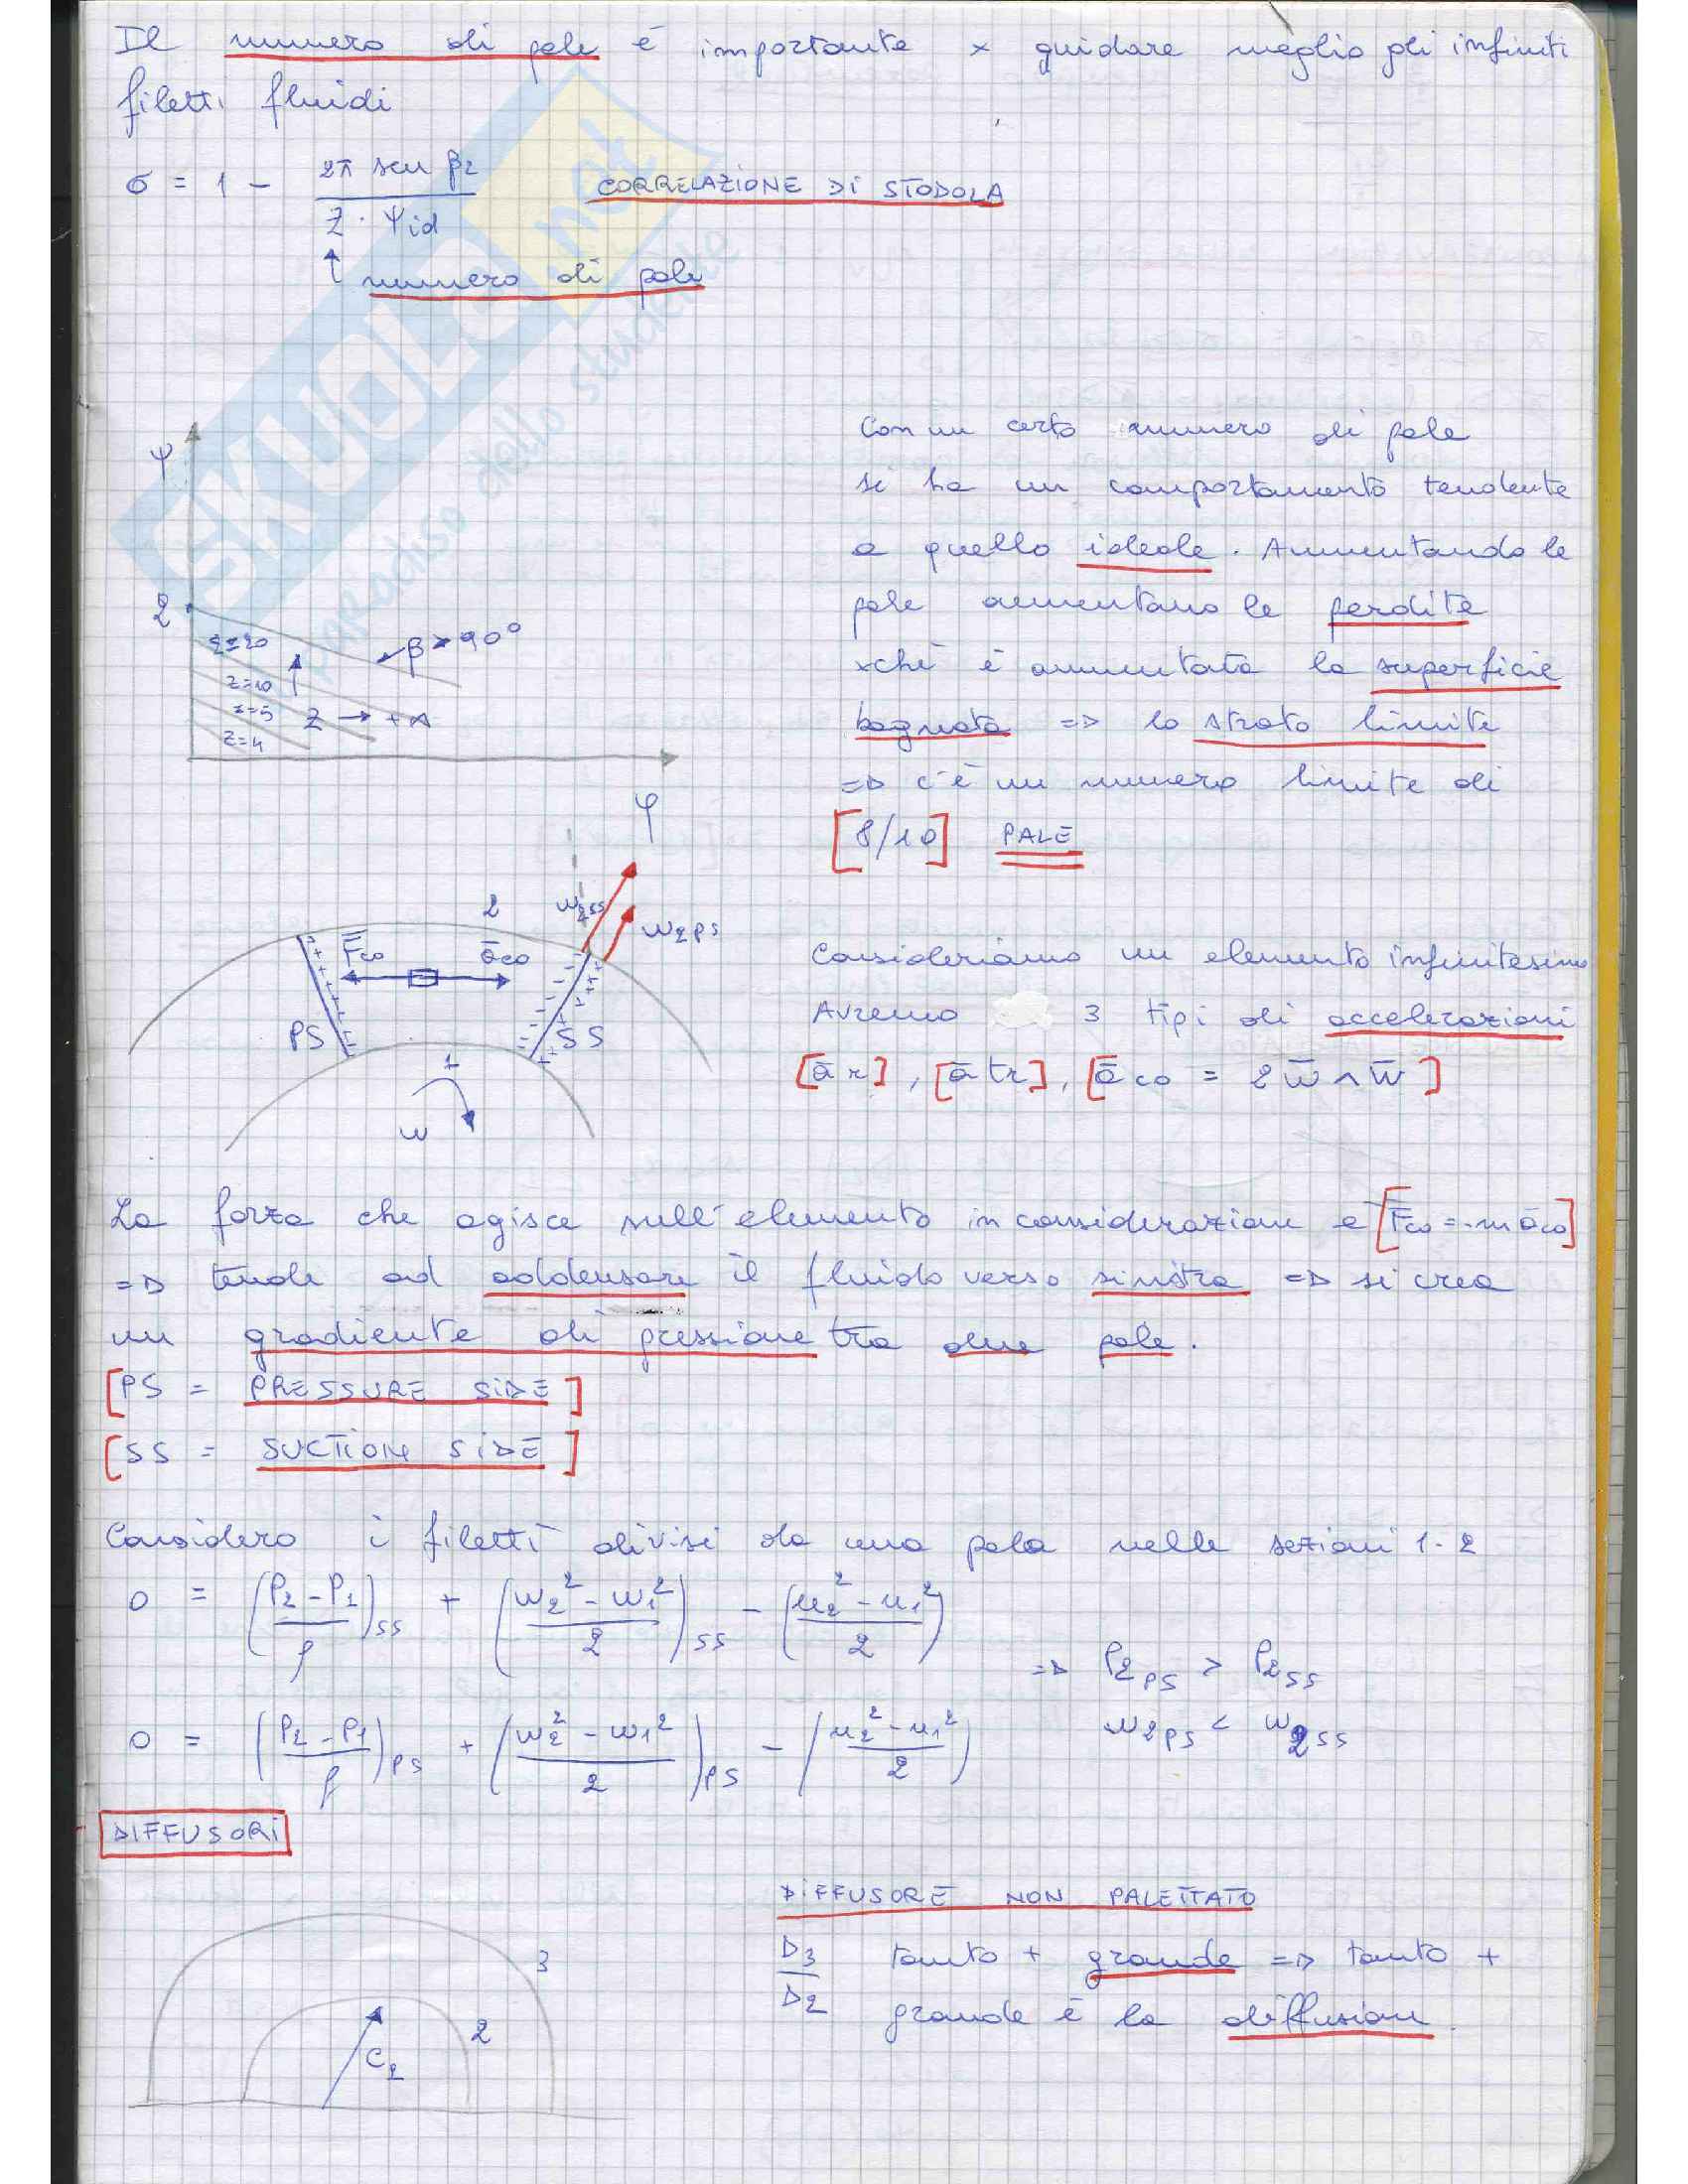 Il numero di pale è importante x guidare meglio gli infiniti
filetti fluidi
σ = 1 - 2π sen β2 / Z · Ψid
CORRELAZIONE DI STODOLA
↑ numero di pale
SKUOLA.net
paradiso dello studente
Ψ
2
z=20
z=10
z=5
z=4
β > 90°
Z → + ∞
φ
Con un certo numero di pale
si ha un comportamento tendente
a quello ideale. Aumentando le
pale aumentano le perdite
xchè è aumentata la superficie
bagnata => lo strato limite
=> c'è un numero limite di
[8/10] PALE
2
W2ss
W2PS
Fco
aco
PS
SS
1
ω
Consideriamo un elemento infinitesimo
Avremo 3 tipi di accelerazioni
[ār], [ātr], [āco = 2ω̄ ∧ w̄]
La forza che agisce sull'elemento in considerazione è [F̄co = -m āco]
=> tende ad addensare il fluido verso sinistra => si crea
un gradiente di pressione tra due pale.
[PS = PRESSURE SIDE]
[SS = SUCTION SIDE]
Considero i filetti divisi da una pala nelle sezioni 1-2
0 = ((P2 - P1)/ρ)ss + ((w2² - w1²)/2)ss - ((u2² - u1²)/2)
=> P2PS > P2SS
0 = ((P2 - P1)/ρ)PS + ((w2² - w1²)/2)PS - ((u2² - u1²)/2)
w2PS < w2SS
DIFFUSORI
3
2
C2
DIFFUSORE NON PALETTATO
D3/D2 tanto + grande => tanto +
grande è la diffusione.